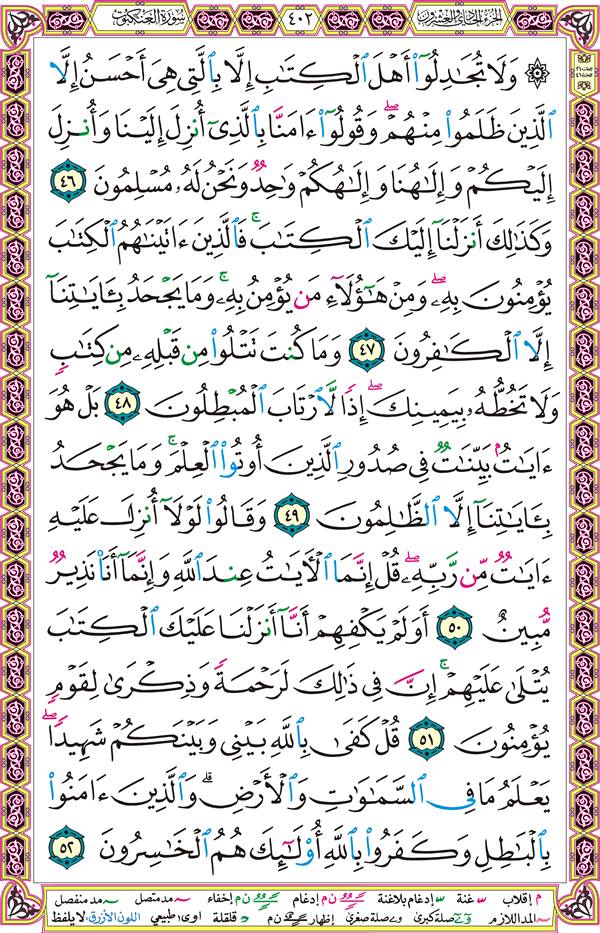 الجزء الحادي والعشرون ٤٠٢ سورة العنكبوت
۞ وَلَا تُجَٰدِلُوٓا۟ أَهْلَ ٱلْكِتَٰبِ إِلَّا بِٱلَّتِى هِىَ أَحْسَنُ إِلَّا
ٱلَّذِينَ ظَلَمُوا۟ مِنْهُمْ ۖ وَقُولُوٓا۟ ءَامَنَّا بِٱلَّذِىٓ أُنزِلَ إِلَيْنَا وَأُنزِلَ
إِلَيْكُمْ وَإِلَٰهُنَا وَإِلَٰهُكُمْ وَٰحِدٌ وَنَحْنُ لَهُۥ مُسْلِمُونَ ٤٦
وَكَذَٰلِكَ أَنزَلْنَآ إِلَيْكَ ٱلْكِتَٰبَ ۚ فَٱلَّذِينَ ءَاتَيْنَٰهُمُ ٱلْكِتَٰبَ
يُؤْمِنُونَ بِهِۦ ۖ وَمِنْ هَٰٓؤُلَآءِ مَن يُؤْمِنُ بِهِۦ ۚ وَمَا يَجْحَدُ بِـَٔايَٰتِنَآ
إِلَّا ٱلْكَٰفِرُونَ ٤٧ وَمَا كُنتَ تَتْلُوا۟ مِن قَبْلِهِۦ مِن كِتَٰبٍ
وَلَا تَخُطُّهُۥ بِيَمِينِكَ ۖ إِذًا لَّٱرْتَابَ ٱلْمُبْطِلُونَ ٤٨ بَلْ هُوَ
ءَايَٰتٌۢ بَيِّنَٰتٌ فِى صُدُورِ ٱلَّذِينَ أُوتُوا۟ ٱلْعِلْمَ ۚ وَمَا يَجْحَدُ
بِـَٔايَٰتِنَآ إِلَّا ٱلظَّٰلِمُونَ ٤٩ وَقَالُوا۟ لَوْلَآ أُنزِلَ عَلَيْهِ
ءَايَٰتٌ مِّن رَّبِّهِۦ ۖ قُلْ إِنَّمَا ٱلْءَايَٰتُ عِندَ ٱللَّهِ وَإِنَّمَآ أَنَا۠ نَذِيرٌ
مُّبِينٌ ٥٠ أَوَلَمْ يَكْفِهِمْ أَنَّآ أَنزَلْنَا عَلَيْكَ ٱلْكِتَٰبَ
يُتْلَىٰ عَلَيْهِمْ ۚ إِنَّ فِى ذَٰلِكَ لَرَحْمَةً وَذِكْرَىٰ لِقَوْمٍ
يُؤْمِنُونَ ٥١ قُلْ كَفَىٰ بِٱللَّهِ بَيْنِى وَبَيْنَكُمْ شَهِيدًا ۖ
يَعْلَمُ مَا فِى ٱلسَّمَٰوَٰتِ وَٱلْأَرْضِ ۗ وَٱلَّذِينَ ءَامَنُوا۟
بِٱلْبَٰطِلِ وَكَفَرُوا۟ بِٱللَّهِ أُو۟لَٰٓئِكَ هُمُ ٱلْخَٰسِرُونَ ٥٢
م إقلاب غنة إدغام بلاغنة ن م إدغام ن م إخفاء مد متصل مد منفصل
المد اللازم صلة كبرى صلة صغرى إظهار ن م قلقلة اوى طبيعي اللون الأزرق: لا يلفظ